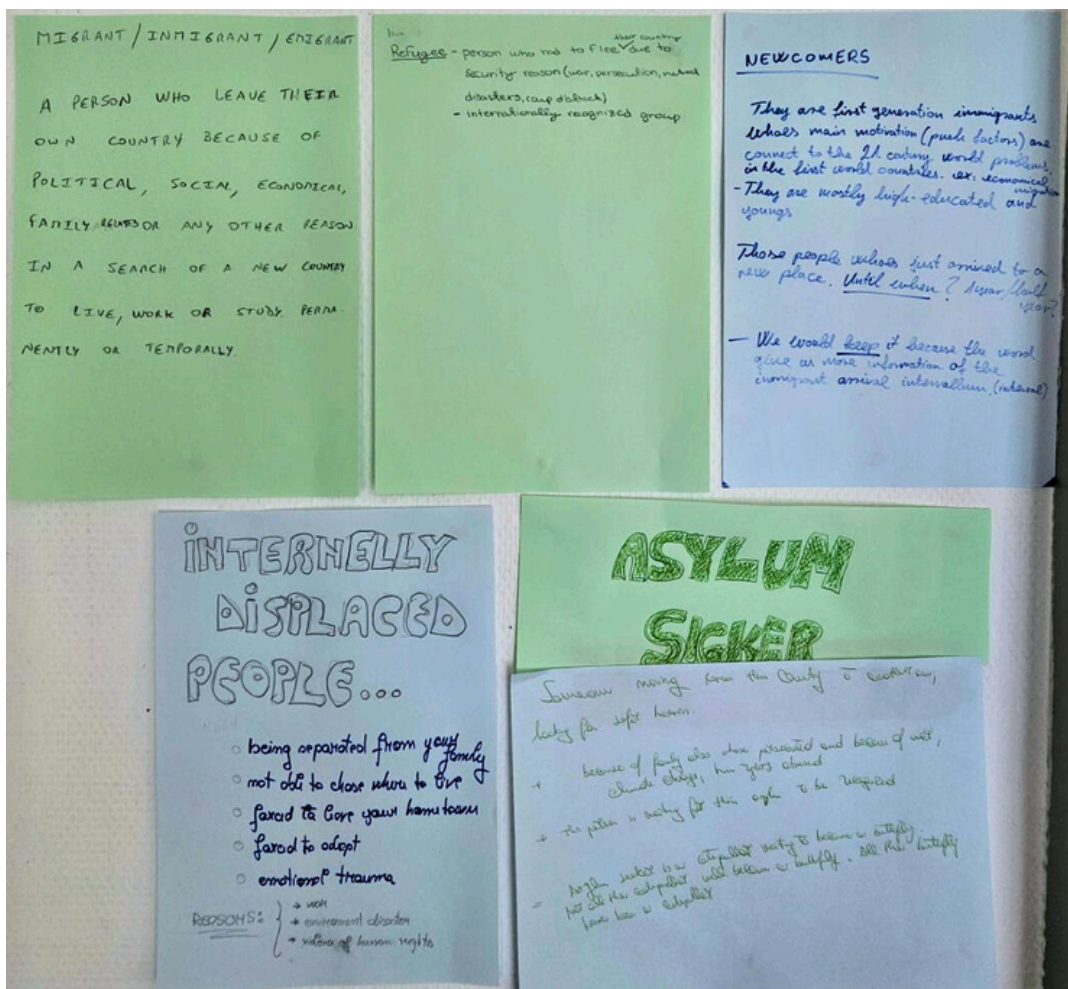 MIGRANT / INMIGRANT / EMIGRANT
A PERSON WHO LEAVE THEIR
OWN COUNTRY BECAUSE OF
POLITICAL, SOCIAL, ECONOMICAL,
FAMILY RELATES OR ANY OTHER REASON
IN A SEARCH OF A NEW COUNTRY
TO LIVE, WORK OR STUDY. PERMA-
NENTLY OR TEMPORALLY.
their country
Refugee - person who had to flee due to
security reason (war, persecution, natural
disasters, coup d'
- internationally recognized group
NEWCOMERS
They are first generation immigrants
whoes main motivation (push factors) are
connect to the 21. century world problems.
in the first world countries. ex: economical
migration
- They are mostly high-educated and
youngs
Those people whoes just arrived to a
new place. Until when? 1year/half
year?
- We would keep it because the word
give us more information of the
immigrant arrival intervallum. (interval)
INTERNELLY
DISPLACED
PEOPLE...
being separated from your family
not able to chose where to live
forced to leave your hometown
forced to adapt
emotional trauma
REASONS:
→ war
→ enviroment disaster
→ of human rights
ASYLUM
SICKER
Someone moving from country to another one,
looking for safer heaven.
because of family also when persecuted and because of war,
climate change, human rights abused
this person is waiting for this to be recognized
Asylum seeker is a waiting to become a butterfly
Not all the will become a butterfly. All the butterfly
have been a